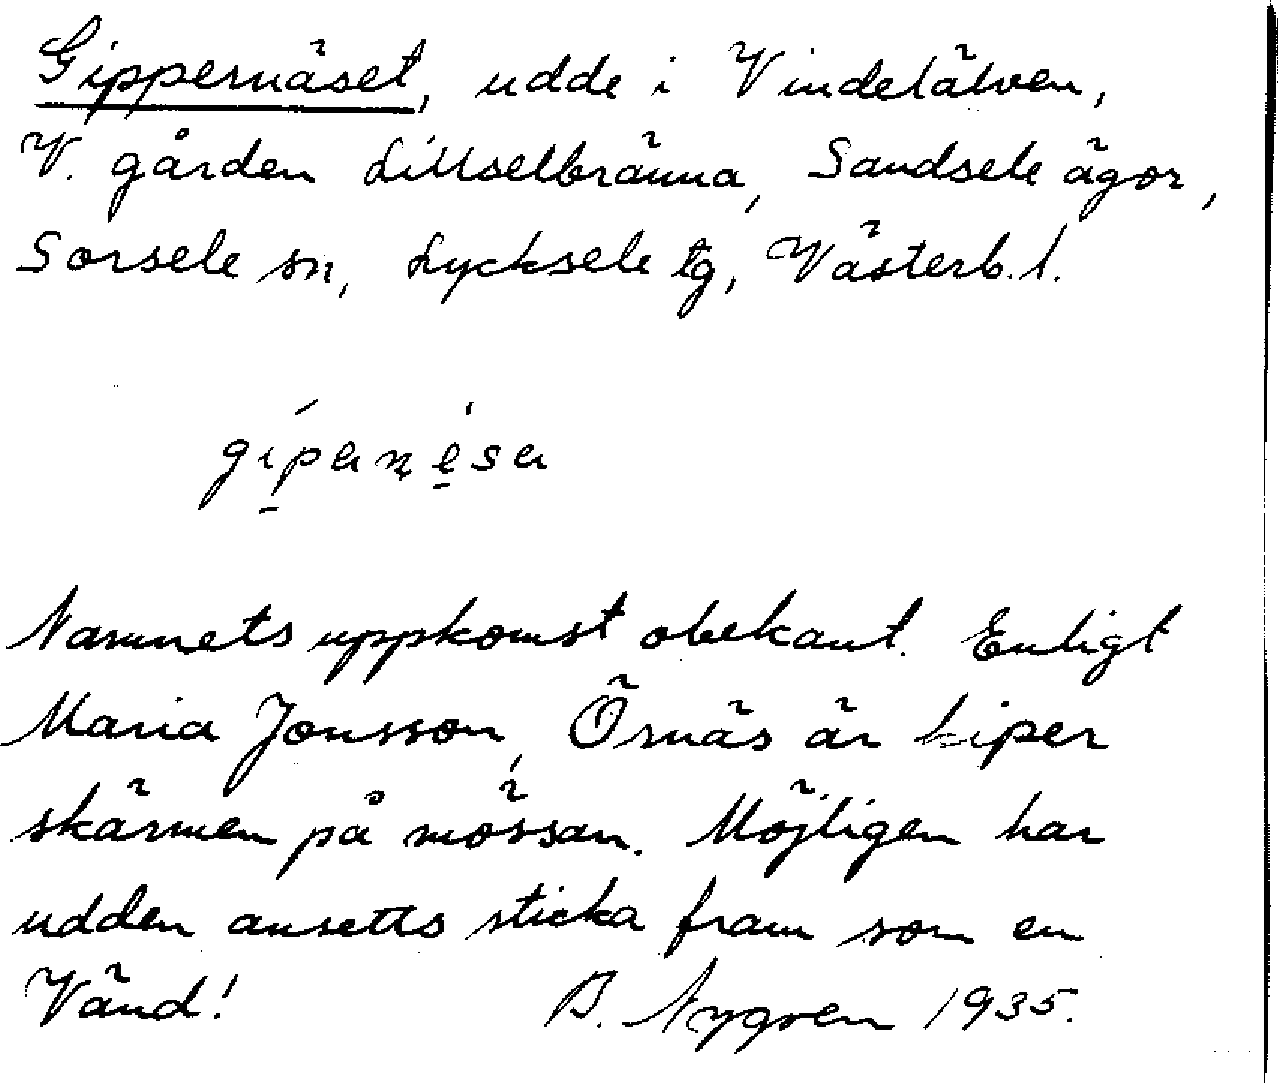 Gippernäset, udde i Vindelälven,
V. gården Lillselbränna, Sandsele ägor,
Sorsele sn, Lycksele tg, Västerb. l.
Namnets uppkomst obekant. Enligt
Maria Jonsson, Örnäs är kiper
skärmen på mössan. Möjligen har
udden ansetts sticka fram som en
Vänd! B. Nygren 1935.